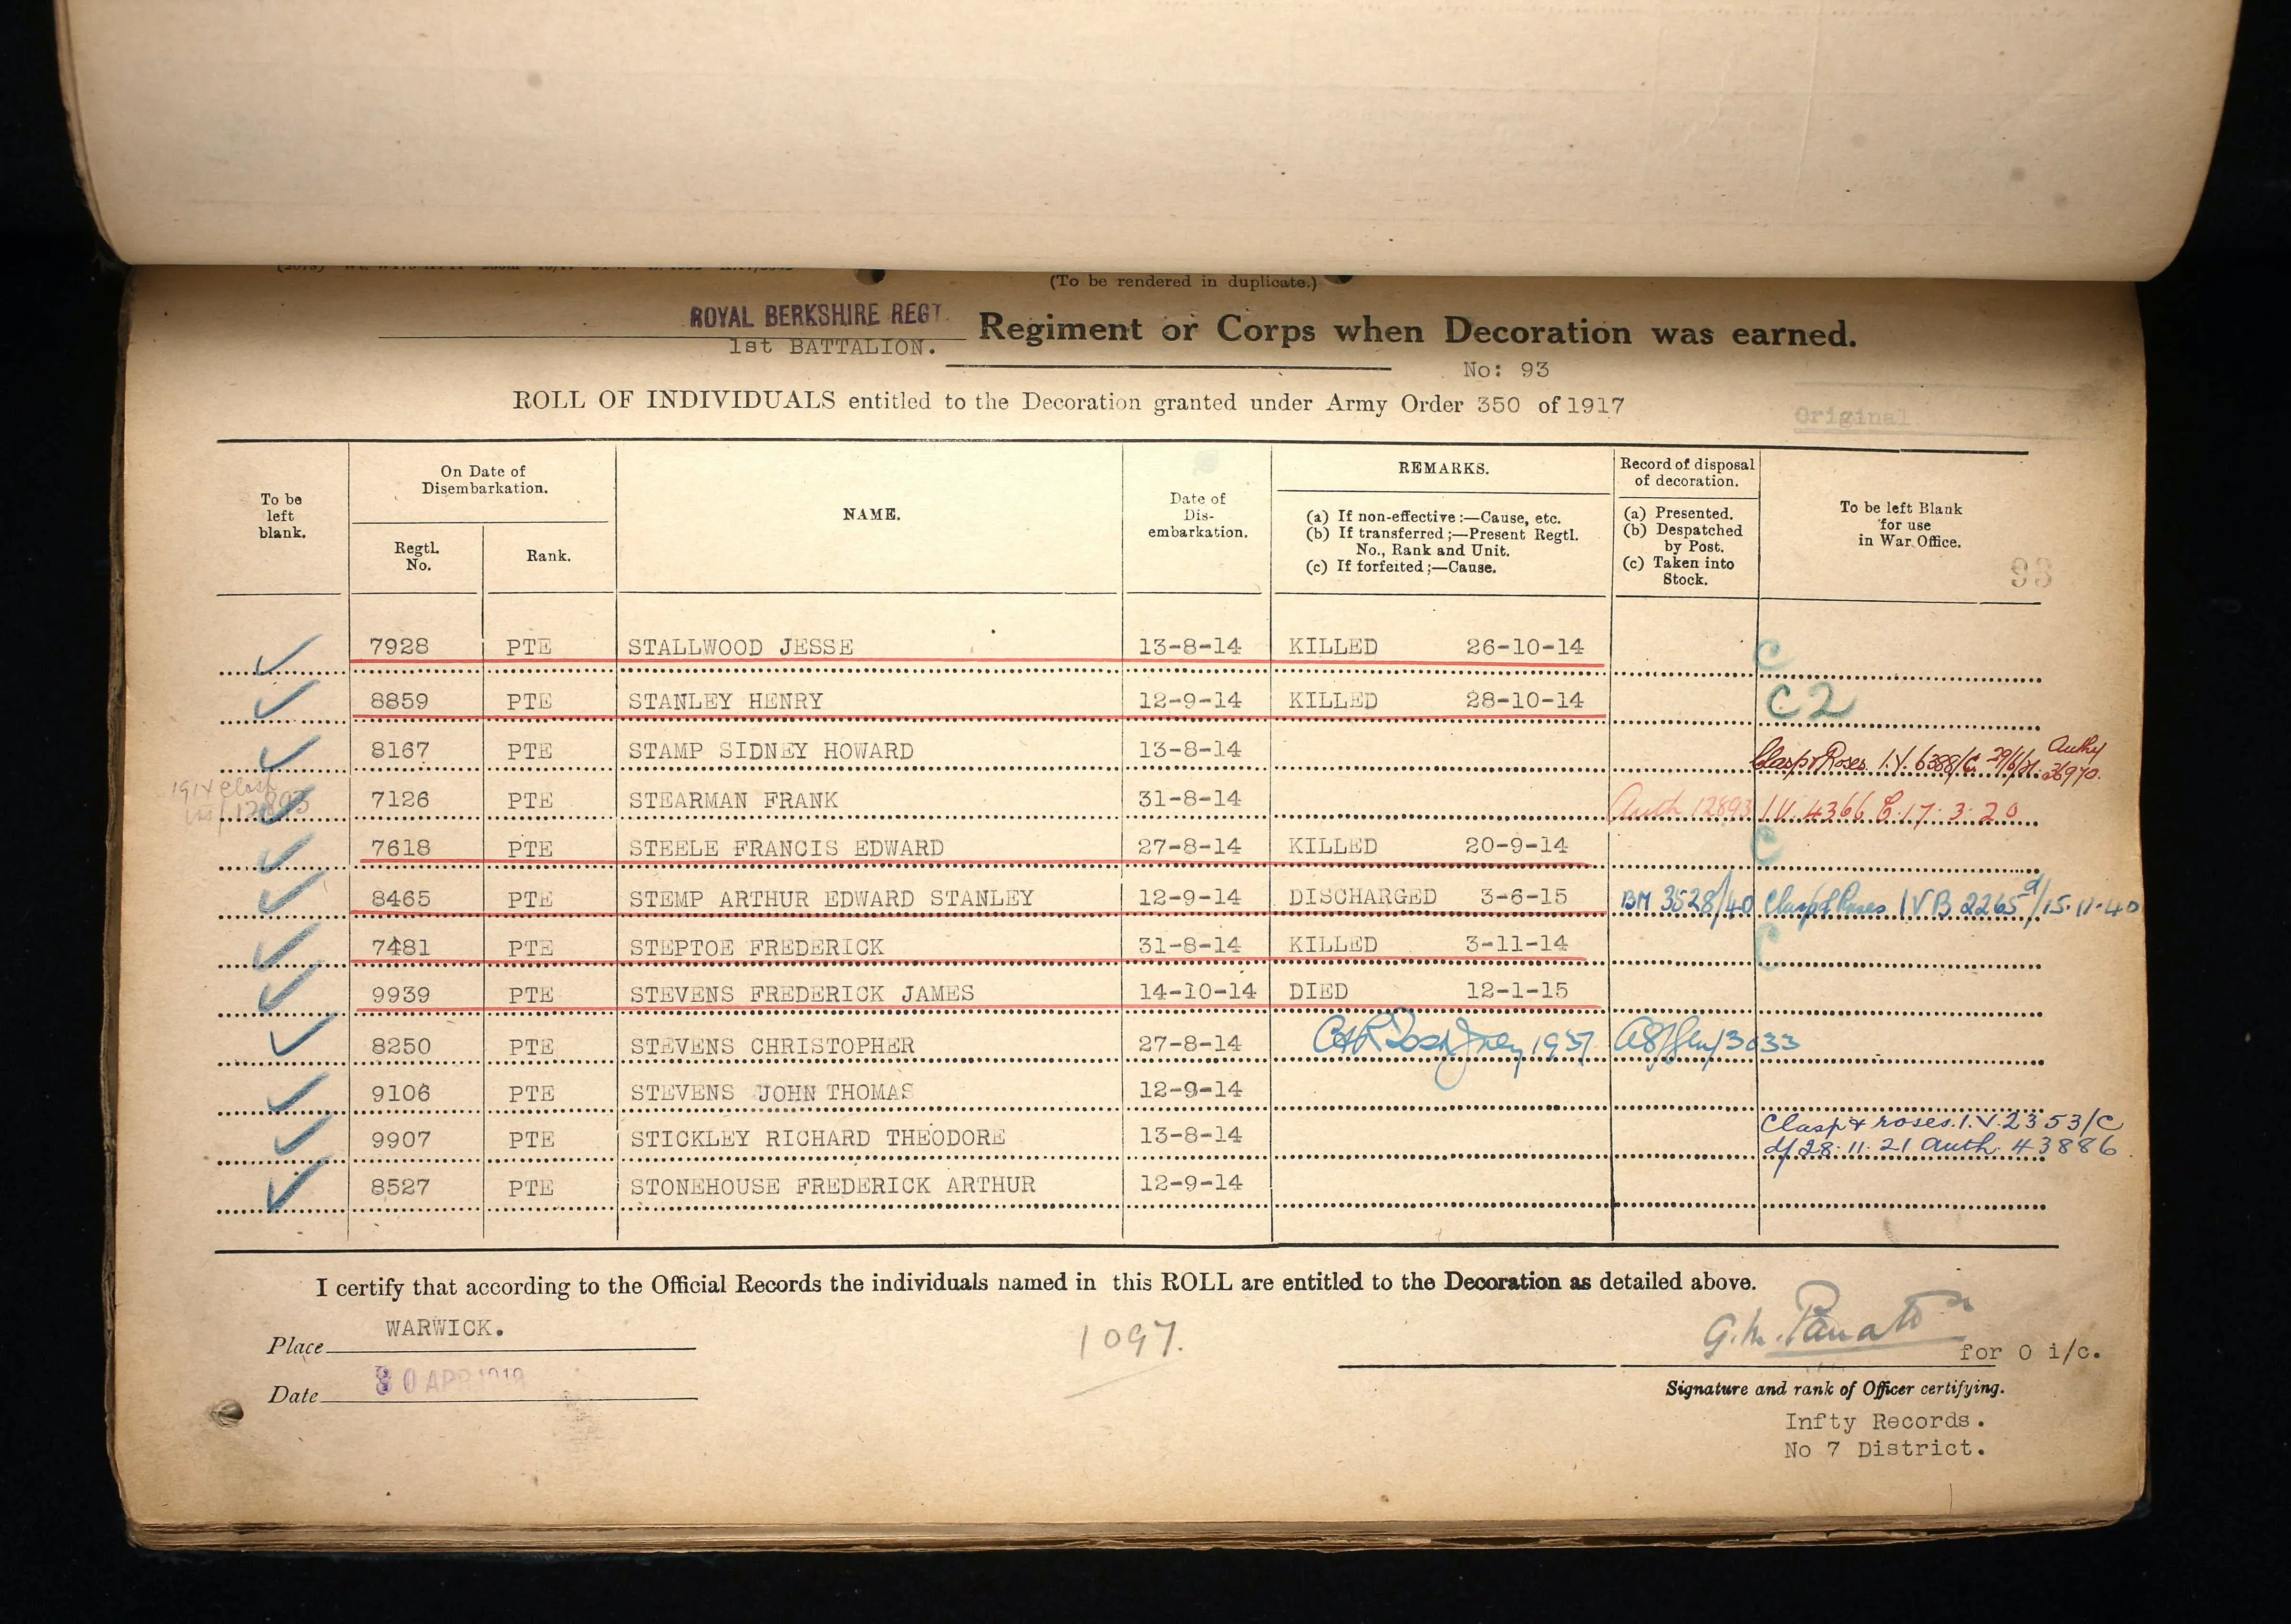 (To be rendered in duplicate.)
ROYAL BERKSHIRE REGT. Regiment or Corps when Decoration was earned.
1st BATTALION.
No: 93
ROLL OF INDIVIDUALS entitled to the Decoration granted under Army Order 350 of 1917
Original
To be left blank.
On Date of Disembarkation.
Regtl. No.
Rank.
NAME.
Date of Dis-embarkation.
REMARKS.
(a) If non-effective:—Cause, etc.
(b) If transferred;—Present Regtl. No., Rank and Unit.
(c) If forfeited;—Cause.
Record of disposal of decoration.
(a) Presented.
(b) Despatched by Post.
(c) Taken into Stock.
To be left Blank for use in War Office.
93
7928 PTE STALLWOOD JESSE 13-8-14 KILLED 26-10-14 C
8859 PTE STANLEY HENRY 12-9-14 KILLED 28-10-14 C2
8167 PTE STAMP SIDNEY HOWARD 13-8-14 Clasp & Roses I.V. 6388/C 29/6/21. Authy 36970.
1914 Clasp 12893
7126 PTE STEARMAN FRANK 31-8-14 Auth 12893 I.V. 4366 E. 17. 3. 20
7618 PTE STEELE FRANCIS EDWARD 27-8-14 KILLED 20-9-14 C
8465 PTE STEMP ARTHUR EDWARD STANLEY 12-9-14 DISCHARGED 3-6-15 BM 3528/40 Clasp & Roses IVB 2265 d/15.11.40
7481 PTE STEPTOE FREDERICK 31-8-14 KILLED 3-11-14 C
9939 PTE STEVENS FREDERICK JAMES 14-10-14 DIED 12-1-15
8250 PTE STEVENS CHRISTOPHER 27-8-14 1937 3033
9106 PTE STEVENS JOHN THOMAS 12-9-14
9907 PTE STICKLEY RICHARD THEODORE 13-8-14 Clasp & roses. I.V. 2353/C
d/28.11.21 auth. 43886
8527 PTE STONEHOUSE FREDERICK ARTHUR 12-9-14
I certify that according to the Official Records the individuals named in this ROLL are entitled to the Decoration as detailed above.
Place WARWICK.
1097.
G.M.
for O i/c.
Date 30 APR 1919
Signature and rank of Officer certifying.
Infty Records.
No 7 District.